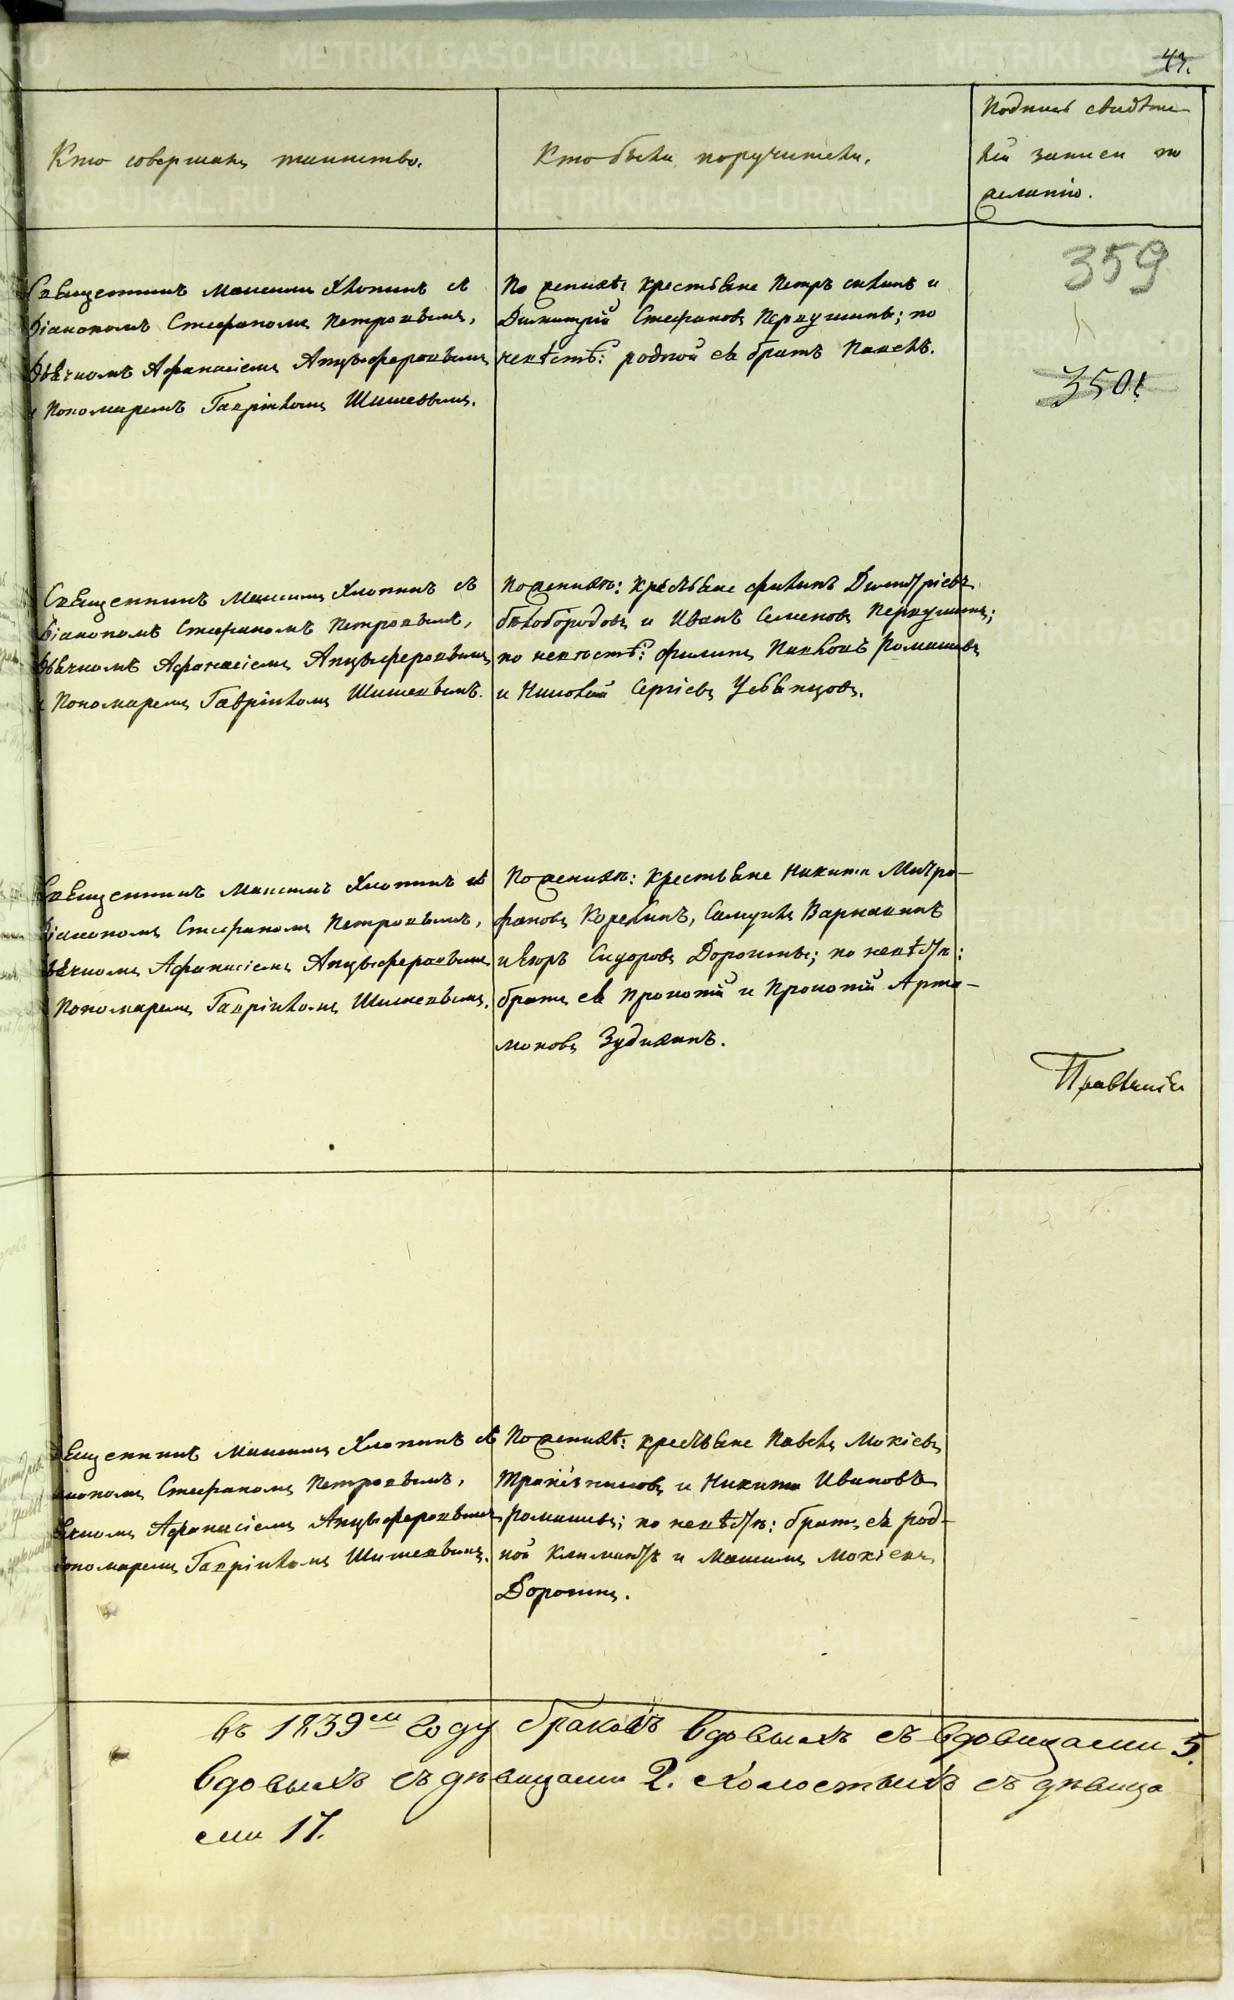 43.
Кто совершалъ таинство.
Кто были поручители.
Подпись свидѣте-
лей записи по
желанію.
359
350
Священникъ Максимъ Хлопинъ съ
Діакономъ Стефаномъ Петровымъ,
Дьячкомъ Афанасіемъ Анцыферовымъ
и Пономаремъ Гавріиломъ Шишевымъ.
По женихѣ: крестьяне Петръ и
Димитрій Стефановъ Первушины; по
невѣстѣ: родной ея братъ Павелъ.
Священникъ Максимъ Хлопинъ съ
Діакономъ Стефаномъ Петровымъ,
Дьячкомъ Афанасіемъ Анцыферовымъ
и Пономаремъ Гавріиломъ Шишевымъ.
По женихѣ: крестьяне Филипъ Димитріевъ
Бѣлобородовъ и Иванъ Семеновъ Первушинъ;
по невѣстѣ: Филипъ Павловъ Ромашевъ
и Николай Сергіевъ
Священникъ Максимъ Хлопинъ съ
Діакономъ Стефаномъ Петровымъ,
Дьячкомъ Афанасіемъ Анцыферовымъ
Пономаремъ Гавріиломъ Шишевымъ.
По женихѣ: крестьяне Никита Митро-
фановъ Корелинъ, Самуилъ Варнакинъ
и Егоръ Сидоровъ Дорогины; по невѣстѣ:
братъ ея Прокопій и Прокопій Арта-
моновъ Зудихинъ.
Священникъ Максимъ Хлопинъ съ
Діакономъ Стефаномъ Петровымъ,
Дьячкомъ Афанасіемъ Анцыферовымъ
Пономаремъ Гавріиломъ Шишевымъ.
По женихѣ: крестьяне Павелъ Мокіевъ
и Никита Ивановъ
Ромашевъ; по невѣстѣ: братъ ея род-
ной Климентъ и Максимъ Мокіевъ
Дорогинъ.
въ 1839м году браковъ вдовыхъ съ вдовицами 5.
вдовыхъ съ дѣвицами 2. холостыхъ съ дѣвица
ми 17.
METRIKI.GASO-URAL.RU